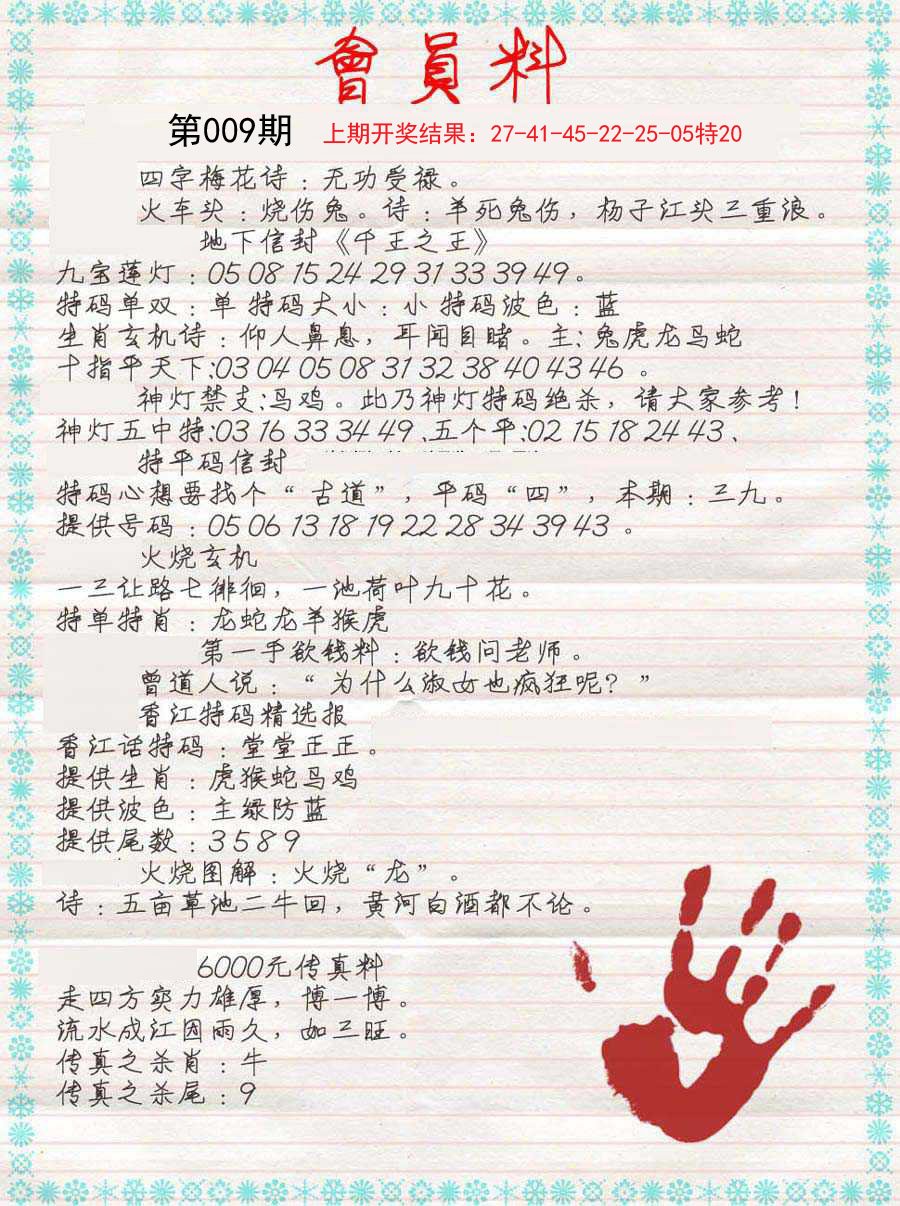 會員料
第009期 上期开奖结果：27-41-45-22-25-05特20
四字梅花诗：无功受禄。
火车头：烧伤兔。诗：羊死兔伤，杨子江头三重浪。
地下信封《千王之王》
九宝莲灯：05 08 15 24 29 31 33 39 49。
特码单双：单 特码大小：小 特码波色：蓝
生肖玄机诗：仰人鼻息，耳闻目睹。主：兔虎龙马蛇
十指平天下:03 04 05 08 31 32 38 40 43 46 。
神灯禁支:马鸡。此乃神灯特码绝杀，请大家参考！
神灯五中特:03 16 33 34 49 、五个平:02 15 18 24 43 、
特平码信封
特码心想要找个“古道”，平码“四”，本期：三九。
提供号码：05 06 13 18 19 22 28 34 39 43 。
火烧玄机
一三让路七徘徊，一池荷叶九十花。
特单特肖：龙蛇龙羊猴虎
第一手欲钱料：欲钱问老师。
曾道人说：“为什么淑女也疯狂呢？”
香江特码精选报
香江话特码：堂堂正正。
提供生肖：虎猴蛇马鸡
提供波色：主绿防蓝
提供尾数：3 5 8 9
火烧图解：火烧“龙”。
诗：五亩草池二牛回，黄河白酒都不论。
6000元传真料
走四方实力雄厚，博一博。
流水成江因雨久，如三旺。
传真之杀肖：牛
传真之杀尾：9